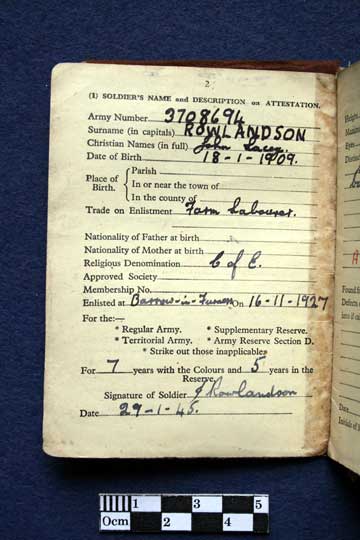 2
(1) SOLDIER'S NAME and DESCRIPTION on ATTESTATION.
Army Number 3708694
Surname (in capitals) ROWLANDSON
Christian Names (in full) John Lacey
Date of Birth 18-1-1909.
Place of Birth. { Parish
In or near the town of
In the county of
Trade on Enlistment Farm Labourer.
Nationality of Father at birth
Nationality of Mother at birth
Religious Denomination C of E.
Approved Society
Membership No.
Enlisted at Barrow-in-Furness On 16-11-1927
For the:—
* Regular Army. * Supplementary Reserve.
* Territorial Army. * Army Reserve Section D.
* Strike out those inapplicable.
For 7 years with the Colours and 5 years in the Reserve.
Signature of Soldier J Rowlandson
Date 29-1-45.
Height
Weight
Eyes
Found
Defects
Date
Initials of
0cm 1 2 3 4 5